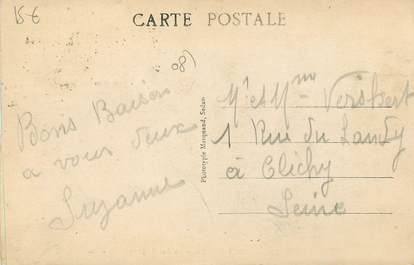 15 €
CARTE POSTALE
08)
Bons Baisers
a vous deux
Suzanne
Phototypie Marquand, Sedan
Mr et Mme
1 Rue du Landy
à Clichy
Seine